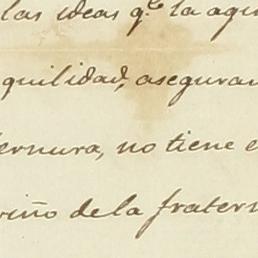 las ideas q.e la aqu
quilidad, aseguran
ernura, no tiene e
riño de la fratern